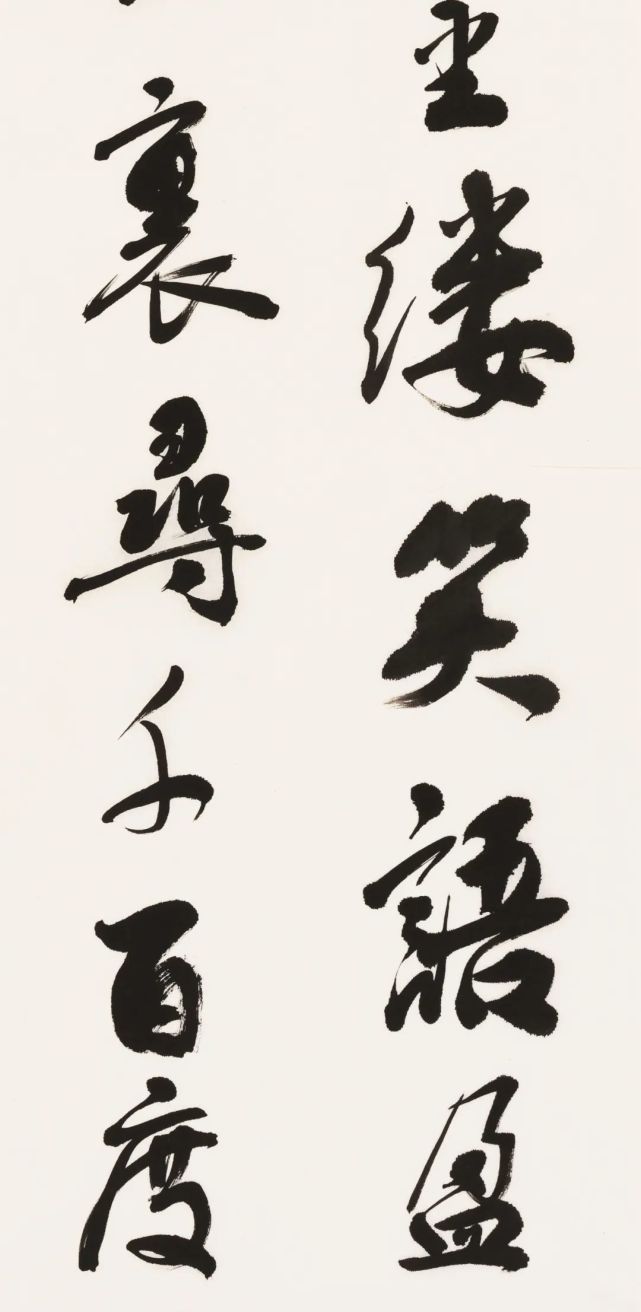 金缕笑語盈
裏尋千百度